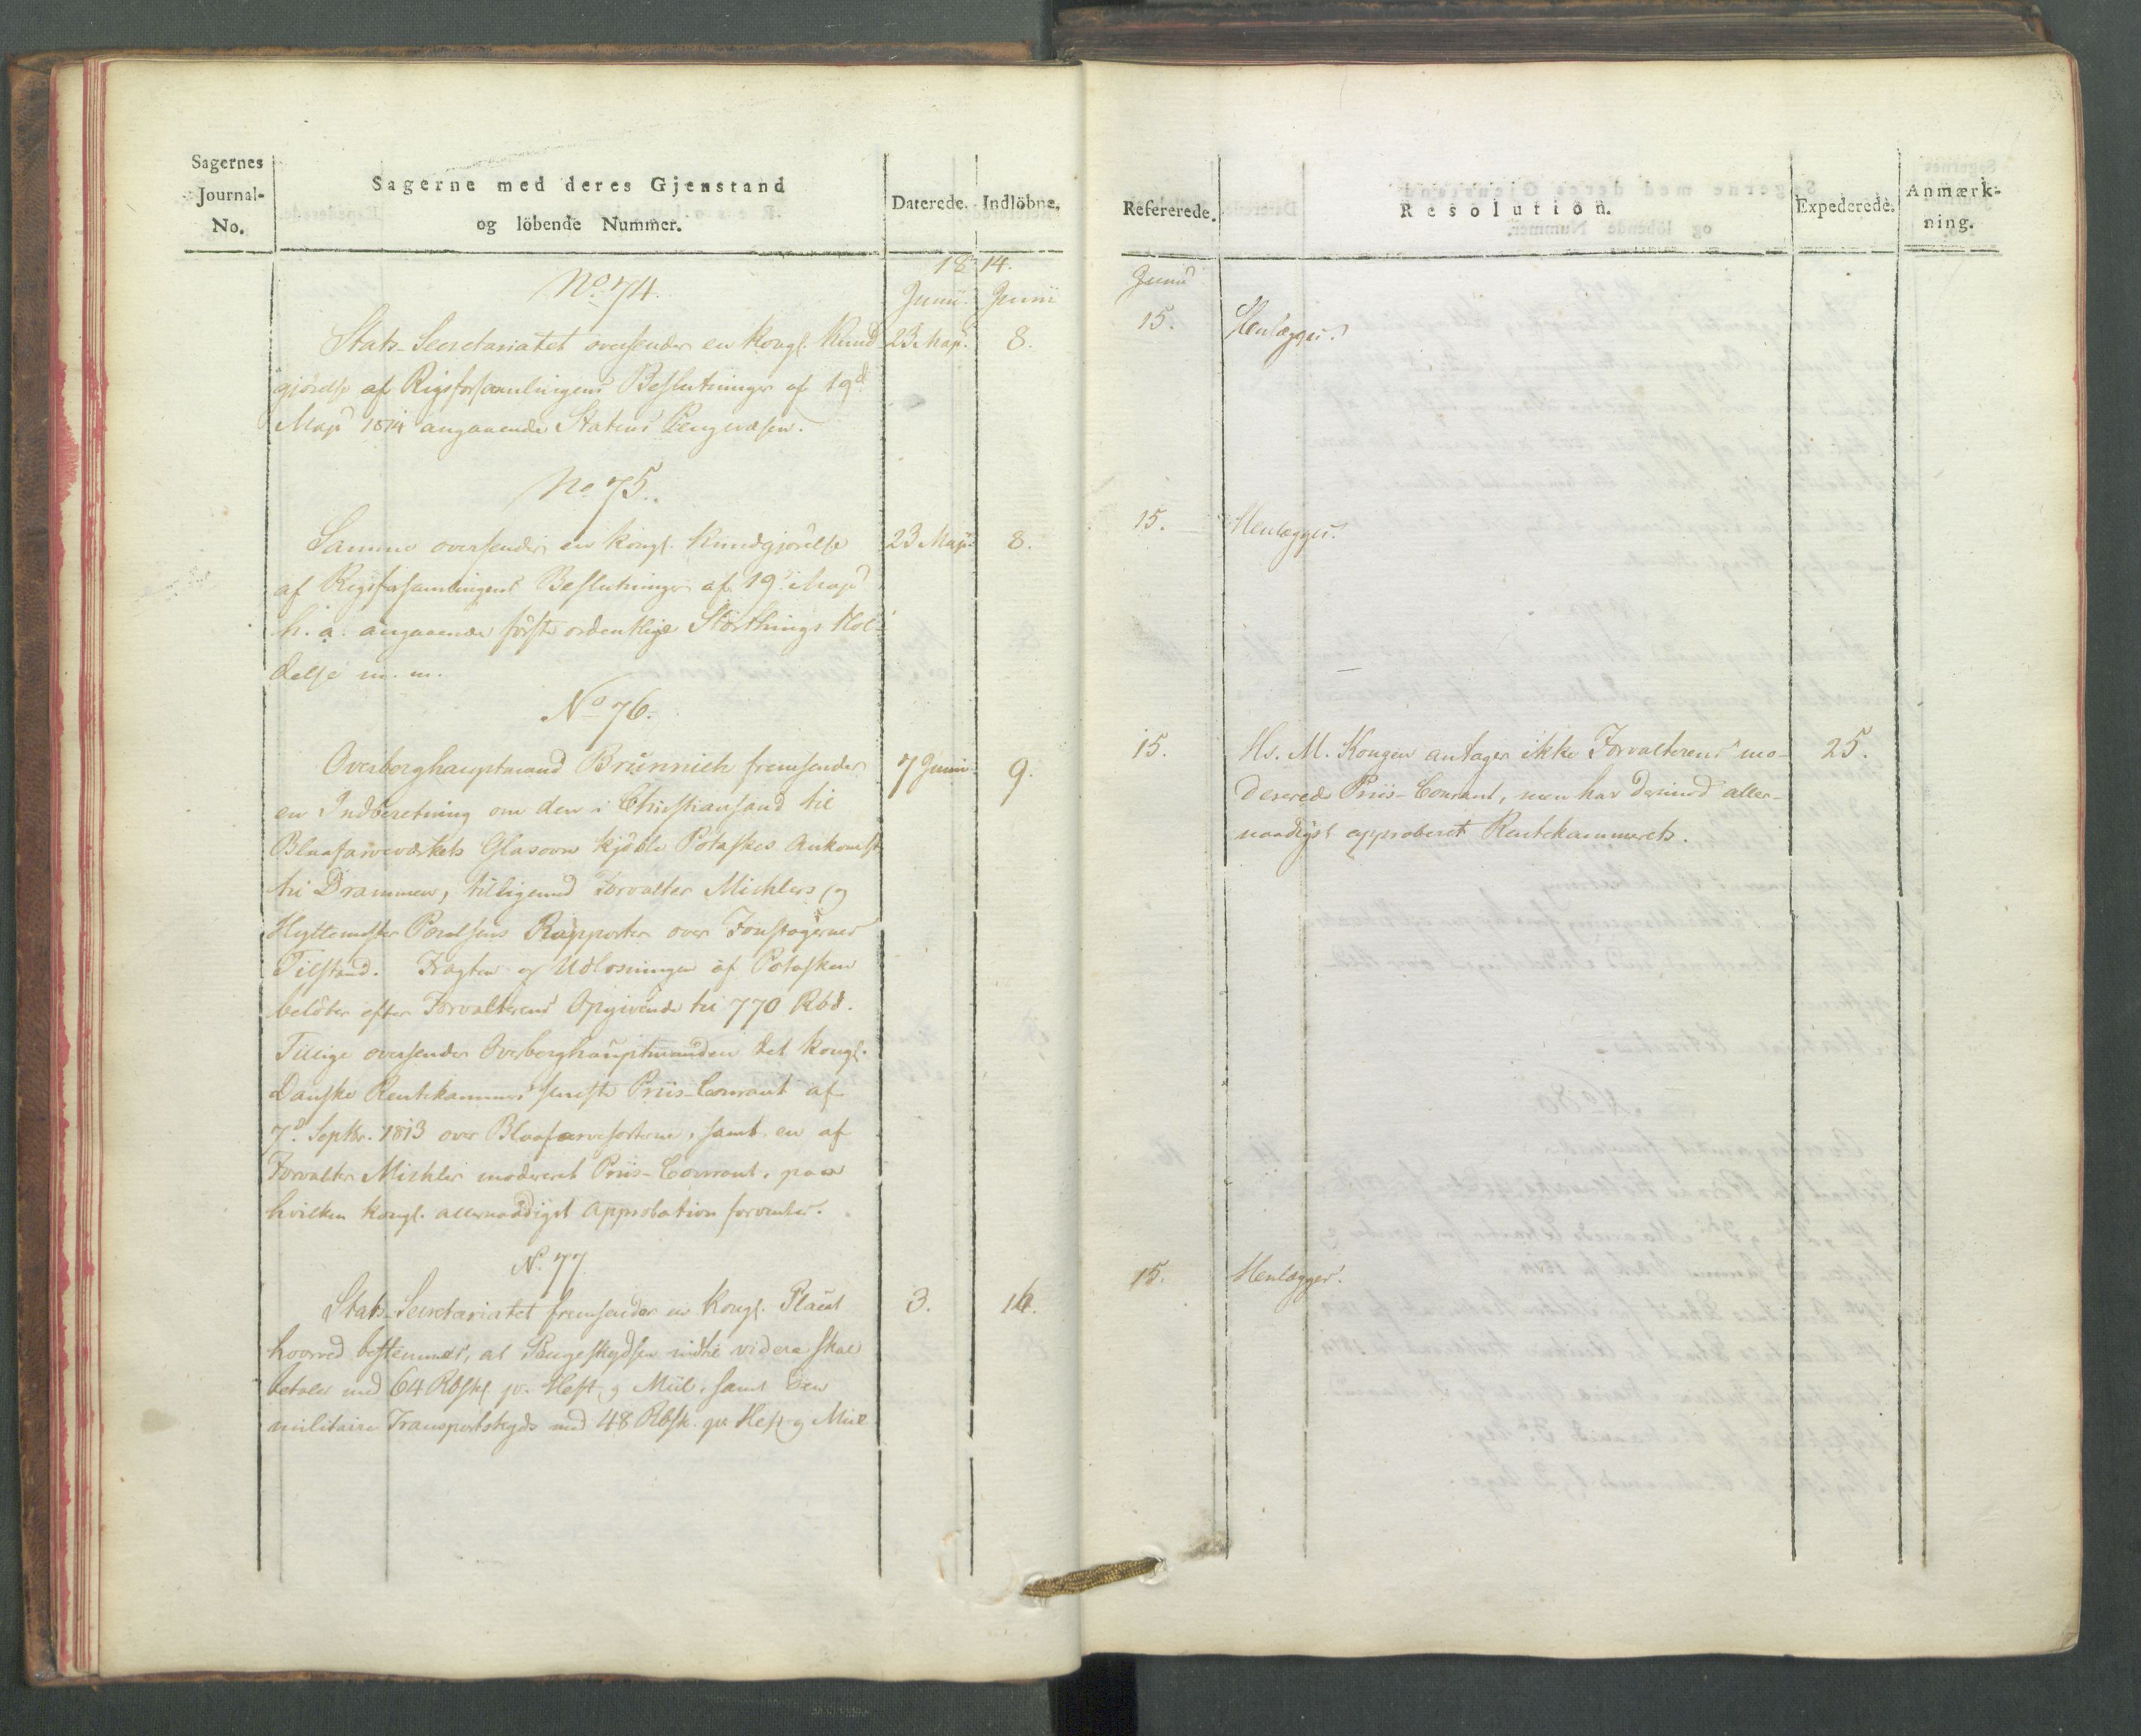 Sagernes
Journal-
No.
Sagerne med deres Gjenstand
og löbende Nummer.
Daterede.
Indlöbne.
18 14.
Junii Junii
No. 74.
Stats-Secretariatet oversender en kongl. Kund- 23 Maji. 8.
gjörelse af Rigsforsamlingens Beslutninger af 19d
Maji 1814 angaaende Statens Pengevæsen.
No 75.
Samme oversender en kongl. Kundgjörelse 23 Maji. 8.
af Rigsforsamlingens Beslutninger af 19 Maji
h. a. angaaende förste ordentlige Storthings Hol-
delse m. m.
No 76.
Overberghauptmand Brünnich fremsender 7 Junii 9.
en Indberetning om den i Christiansand til
Blaafarveværkets Glasovn kjöbte Potaskes Ankomst
til Drammen, tilligemed Forvalter Michlers og
Hyttemester Poulsens Rapporter over
Tilstand. Fragten og Udlosningen af Potasken
belöber efter Forvalterens Opgivende til 770 Rbd.
Tillige oversender Overberghauptmanden det kongl.
Danske Rentekammers seneste Priis-Courant af
7d Septbr. 1813 over Blaafarvesorterne, samt en af
Forvalter Michler modereret Priis-Courant, paa
hvilken kongl. allernaadigst Approbation forventes.
No. 77
Stats-Secretariatet fremsender en kongl. Placat 3. 14.
hvorved bestemmes, at Skydsen indtil videre skal
betales med 64 Rbsk. pr. Hest og Miil, samt den
militaire Transportskyds med 48 Rbsk. pr Hest og Miil
Refererede.
Resolution.
Expederede.
Anmærk-
ning.
Junii
15. Henlægges.
15. Henlægges.
15. Hs. M. Kongen antager ikke Forvalterens mo- 25.
dererede Priis-Courant, men har derimod aller-
naadigst approberet Rentekammerets.
15. Henlægges.